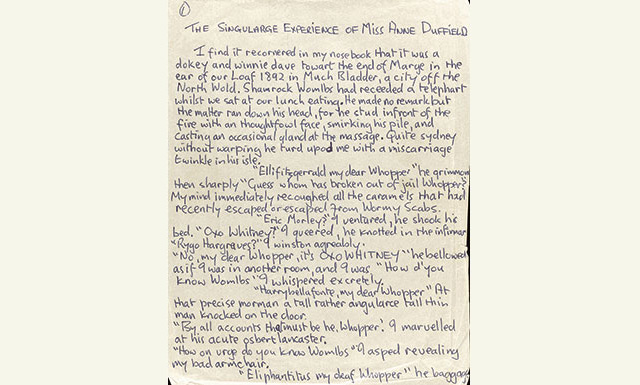 1
THE SINGULARGE EXPERIENCE OF MISS ANNE DUFFIELD
I find it recornered in my nosebook that it was a
dokey and winnie dave towart the end of Marge in the
ear of our Loaf 1892 in Much Bladder, a city off the
North Wold. Shamrock Womlbs had receeded a telephart
whilst we sat at our lunch eating. He made no remark but
the matter ran down his head, for he stud infront of the
fire with an thoughtfowl face, smirking his pile, and
casting an occasional gland at the massage. Quite sydney
without warping he turd upod me with a miscarriage
twinkle in his isle.
"Ellifitzgerrald my dear Whopper" he grimmon
then sharply "Guess whom has broken out of jail Whopper?"
My mind immediately recoughed all the caramels that had
recently escaped or escaped from Wormy Scabs.
"Eric Morley?" I ventured, he shook his
bed. "Oxo Whitney?" I queered, he knotted in the infirmar
"Rygo Hargraves?" I winston agreably.
"No, my dear Whopper, it's OXO WHITNEY" he bellowed
as if I was in another room, and I was. "How d'you
know Womlbs" I whispered excretely.
"Harrybellafonte, my dear Whopper" At
that precise morman a tall rather angularce tall thin
man knocked on the door.
"By all accounts that must be he, Whopper." I marvelled
at his acute osbert lancaster.
"How on urge do you know Womlbs" I asped revealing
my bad armchair.
"Eliphantitus my deaf Whopper" he baggage